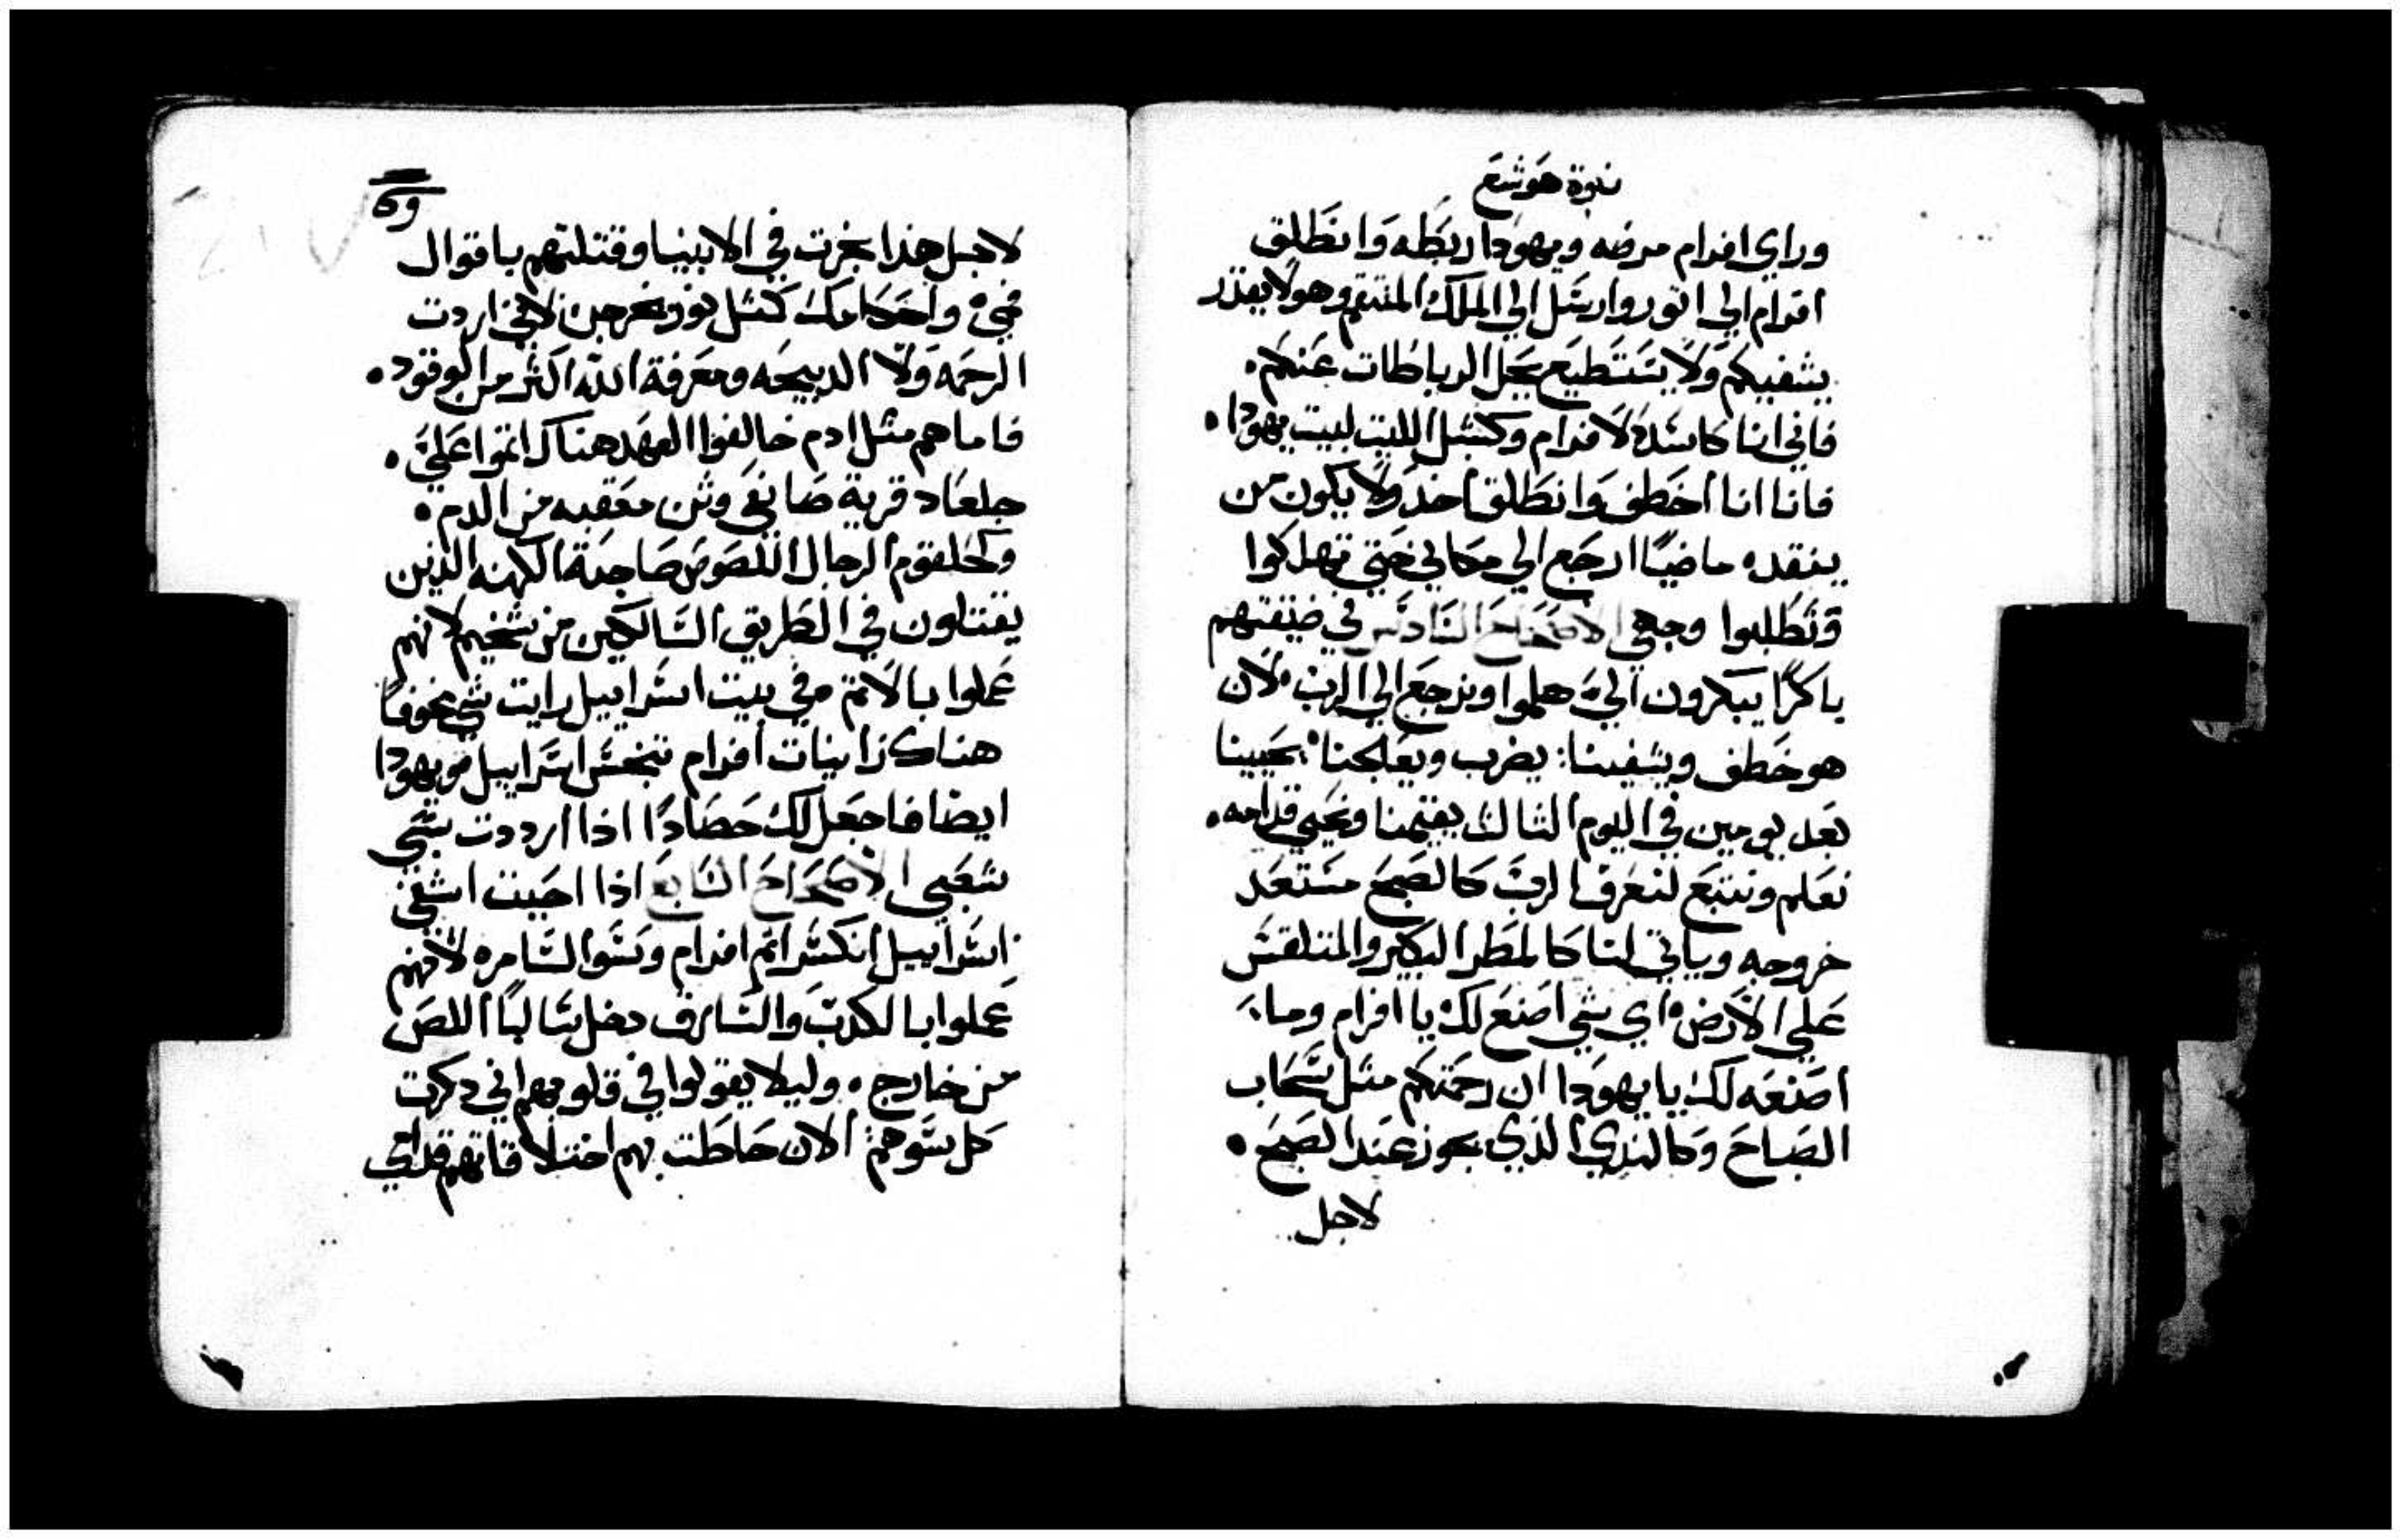 نبوة هوشع
وراي افرام مرضه ويهودا ربطه وانطلق
افرام الي اتور وارسل الي الملك المنتقم وهو لا يقدر
يشفيكم ولا يستطيع يحل الرباطات عنكم.
فاني انا كاسد لافرام وكشبل الليت لبيت يهودا.
فانا انا اخطف وانطلق اخد ولا يكون من
ينقده ماضيًا ارجع الي مكاني حتي تهلكوا
وتطلبوا وجهي الاصحاح السادس في ضيقتهم
باكرًا يبكرون الي هلموا ونرجع الي الرب لان
هو خطف ويشفينا: يضرب ويعالجنا يحيينا
بعد يومين في اليوم الثالث يقيمنا ونحيي قدامه.
نعلم ونتبع لنعرف الرب كالصبح مستعد
خروجه وياتي لنا كالمطر البكير والمتلقس
علي الارض اي شي اصنع لك يا افرام وما
اصنعه لك يا يهودا ان رحمتكم متل سحاب
الصباح وكالندي الذي يجوز عند الصبح.
لاجل
لاجل هذا نجرت في الانبيا وقتلتهم باقوال
في واحكامك كمثل نور تخرجن لاني اردت
الرحمه ولا الدبيحه ومعرفة الله اكثر من الوقود.
فاما هم مثل ادم خالفوا العهد هناك اتموا علي.
جلعاد قرية صانعي وثن معقبه من الدم.
وكحلقوم الرجال اللصوص صاحبة الكهنه الذين
يقتلون في الطريق السالكين من شخيم لانهم
عملوا بالاتم في بيت اسراييل رايت شي مخوفًا
هناك زانيات افرام تنجس اسراييل ويهودا
ايضا فاجعل لك حصادًا اذا ارددت سبي
شعبي الاصحاح السابع اذا احببت اشفي
اسراييل انكشر اتم افرام وسو السامره لانهم
عملوا بالكدب والسارف دخل سالبًا اللص
من خارج. وليلا يقولوا في قلوبهم اني دكرت
كل سوهم الان حاطت بهم اختلافاتهم قدامي